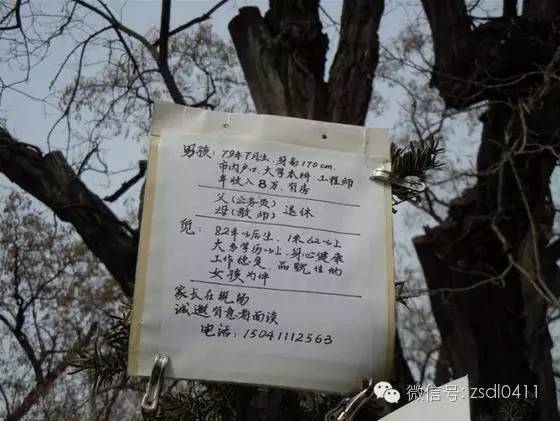 男孩：79年7月生、身高170cm
市内户口、大学本科 工程师
年收入8万、有房
父(公务员)
母(教师) 退休
觅：82年以后生、1米62以上
大专学历以上、身心健康
工作稳定、品貌佳的
女孩为伴
家长在现场
诚邀有意者面谈
电话：15041112563
微信号: zsdl0411